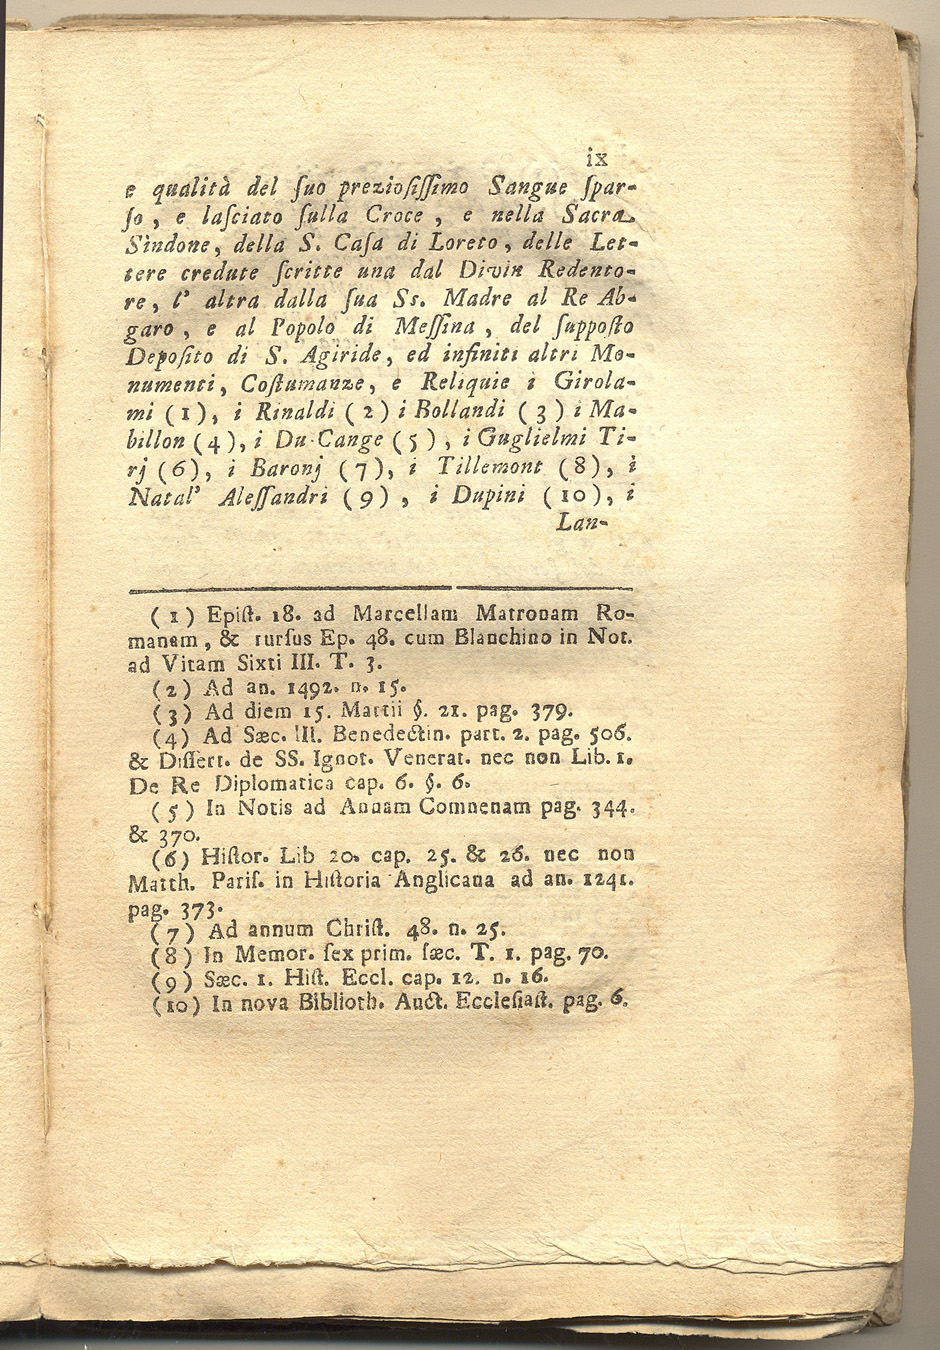 ix
e qualità del ſuo prezioſiſſimo Sangue ſpar-
ſo, e laſciato ſulla Croce, e nella Sacra
Sindone, della S. Caſa di Loreto, delle Let-
tere credute ſcritte una dal Divin Redento-
re, l' altra dalla ſua Ss. Madre al Re Ab-
garo, e al Popolo di Meſſina, del ſuppoſto
Depoſito di S. Agiride, ed infiniti altri Mo-
numenti, Coſtumanze, e Reliquie i Girola-
mi (1), i Rinaldi (2) i Bollandi (3) i Ma-
billon (4), i Du-Cange (5), i Guglielmi Ti-
rj (6), i Baronj (7), i Tillemont (8), i
Natal' Aleſſandri (9), i Dupini (10), i
Lan-
(1) Epiſt. 18. ad Marcellam Matronam Ro-
manam, & rurſus Ep. 48. cum Blanchino in Not.
ad Vitam Sixti III. T. 3.
(2) Ad an. 1492. n. 15.
(3) Ad diem 15. Martii §. 21. pag. 379.
(4) Ad Sæc. III. Benedectin. part. 2. pag. 506.
& Diſſert. de SS. Ignot. Venerat. nec non Lib. 1.
De Re Diplomatica cap. 6. §. 6.
(5) In Notis ad Annam Comnenam pag. 344.
& 370.
(6) Hiſtor. Lib 20. cap. 25. & 26. nec non
Matth. Pariſ. in Hiſtoria Anglicana ad an. 1241.
pag. 373.
(7) Ad annum Chriſt. 48. n. 25.
(8) In Memor. ſex prim. ſæc. T. 1. pag. 70.
(9) Sæc. 1. Hiſt. Eccl. cap. 12. n. 16.
(10) In nova Biblioth. Auct. Eccleſiaſt. pag. 6.